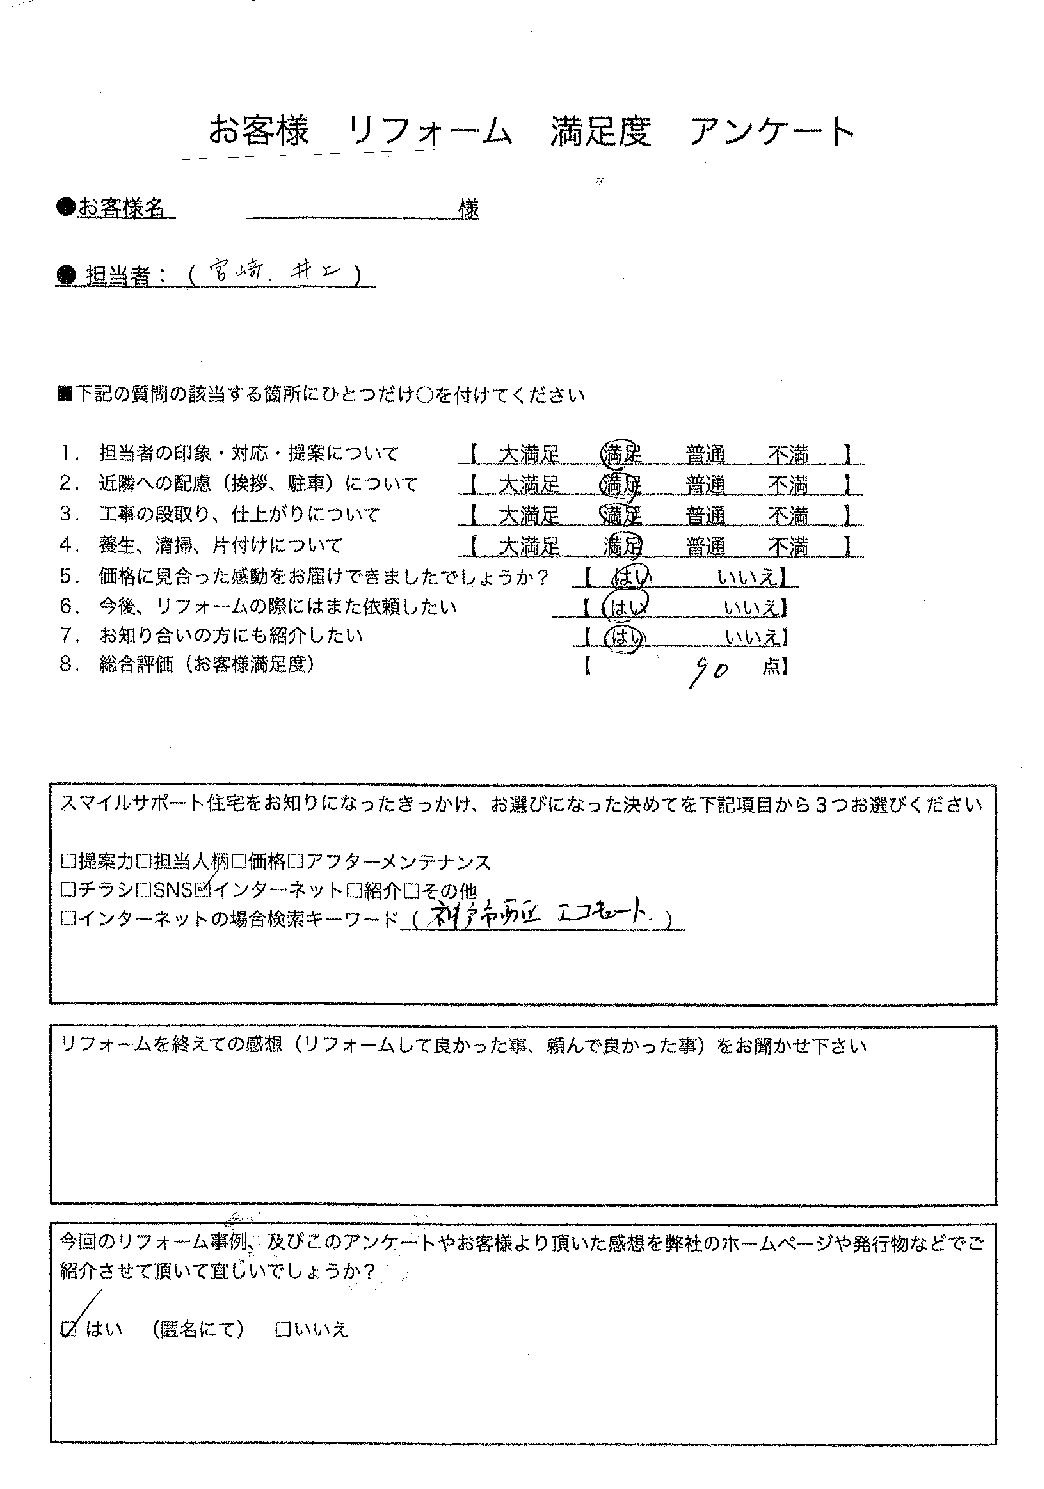 お客様　リフォーム　満足度　アンケート
●お客様名　　　　　　　様
●担当者：（宮崎．井上）
■下記の質問の該当する箇所にひとつだけ○を付けてください
1．担当者の印象・対応・提案について　【　大満足　満足　普通　不満　】
2．近隣への配慮（挨拶、駐車）について　【　大満足　満足　普通　不満　】
3．工事の段取り、仕上がりについて　【　大満足　満足　普通　不満　】
4．養生、清掃、片付けについて　【　大満足　満足　普通　不満　】
5．価格に見合った感動をお届けできましたでしょうか？　【　はい　いいえ】
6．今後、リフォームの際にはまた依頼したい　【　はい　いいえ】
7．お知り合いの方にも紹介したい　【　はい　いいえ】
8．総合評価（お客様満足度）　【　90　点】
スマイルサポート住宅をお知りになったきっかけ、お選びになった決めてを下記項目から3つお選びください
□提案力□担当人柄□価格□アフターメンテナンス
□チラシ□SNS☑インターネット□紹介□その他
□インターネットの場合検索キーワード（神戸市西区 エコキュート．）
リフォームを終えての感想（リフォームして良かった事、頼んで良かった事）をお聞かせ下さい
今回のリフォーム事例、及びこのアンケートやお客様より頂いた感想を弊社のホームページや発行物などでご
紹介させて頂いて宜しいでしょうか？
☑はい　（匿名にて）　□いいえ